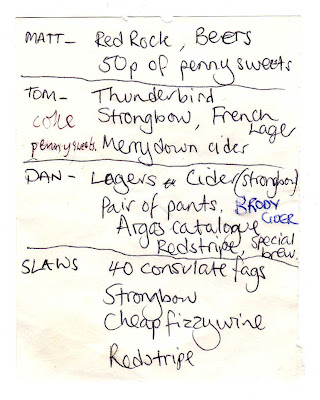 MATT- Red Rock, Beers
50p of penny sweets
TOM- Thunderbird
coke Strongbow, French Lager
penny sweets. Merrydown cider
DAN- Lagers & Cider (Strongbow)
Pair of pants. BRODY CIDER
Argos catalogue
Redstripe, special brew.
SLAWS 40 consulate fags
Strongbow
Cheap fizzy wine
Redstripe